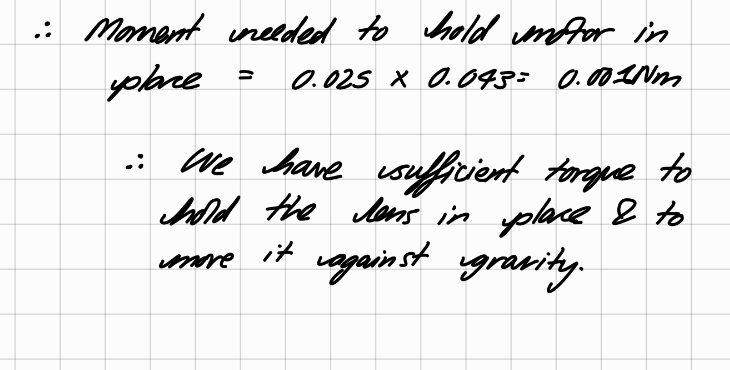 ∴ Moment needed to hold motor in
place = 0.025 x 0.043 = 0.001Nm
∴ We have sufficient torque to
hold the lens in place & to
move it against gravity.